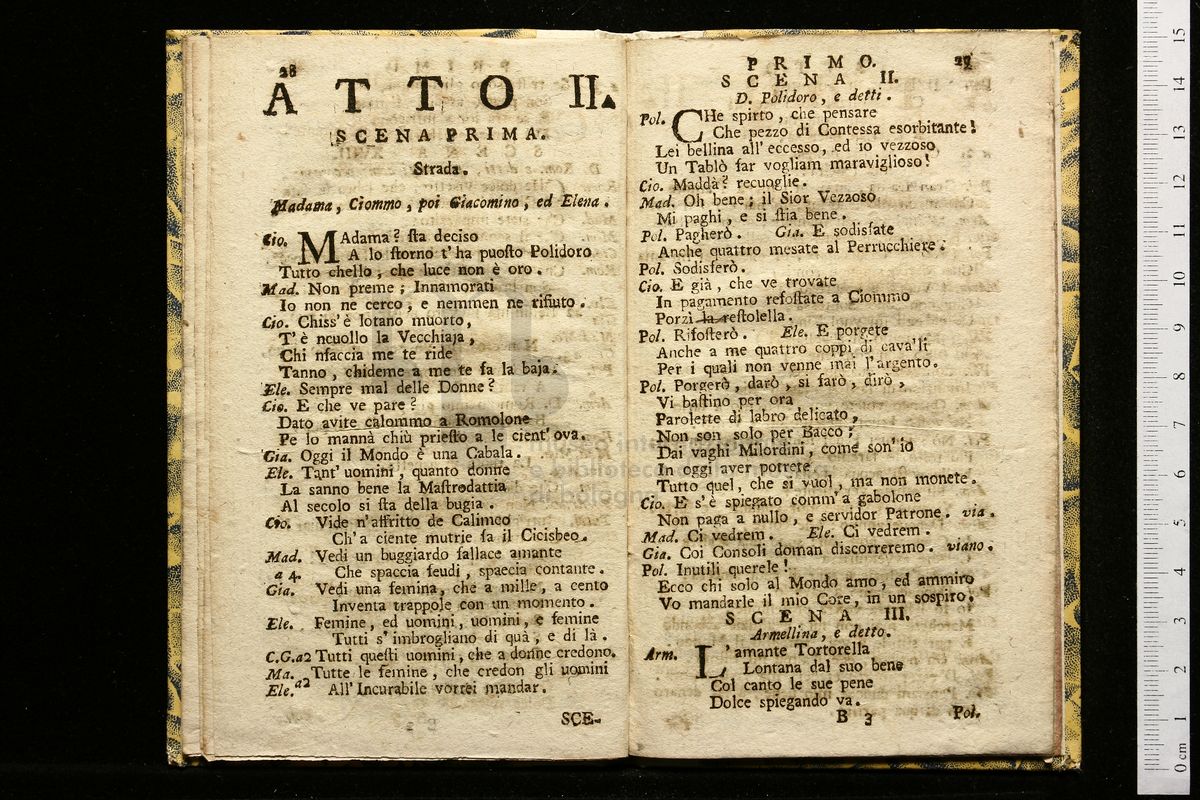 28
ATTO II.
SCENA PRIMA.
Strada.
Madama, Ciommo, poi Giacomino, ed Elena.
Cio. MAdama? sta deciso
A lo storno t'ha puosto Polidoro
Tutto chello, che luce non è oro.
Mad. Non preme; Innamorati
Io non ne cerco, e nemmen ne rifiuto.
Cio. Chiss'è lotano muorto,
T'è ncuollo la Vecchiaja,
Chi nfaccia me te ride
Tanno, chideme a me te fa la baja.
Ele. Sempre mal delle Donne?
Cio. E che ve pare?
Dato avite calommo a Romolone
Pe lo mannà chiù priesto a le cient'ova.
Gia. Oggi il Mondo è una Cabala.
Ele. Tant'uomini, quanto donne
La sanno bene la Mastrodattia
Al secolo si sta della bugia.
Cio. Vide n'affritto de Calimeo
Ch'a ciente mutrie fa il Cicisbeo.
Mad. Vedi un buggiardo fallace amante
a 4. Che spaccia feudi, spaccia contante.
Gia. Vedi una femina, che a mille, a cento
Inventa trappole con un momento.
Ele. Femine, ed uomini, uomini, e femine
Tutti s'imbrogliano di quà, e di là.
C.G.a2 Tutti questi uomini, che a donne credono.
Ma. Tutte le femine, che credon gli uomini
Ele. a2 All'Incurabile vorrei mandar.
SCE-
PRIMO. 29
SCENA II.
D. Polidoro, e detti.
Pol. CHe spirto, che pensare
Che pezzo di Contessa esorbitante!
Lei bellina all'eccesso, ed io vezzoso
Un Tablò far vogliam maraviglioso!
Cio. Maddà? recuoglie.
Mad. Oh bene; il Sior Vezzoso
Mi paghi, e si stia bene.
Pol. Pagherò. Gia. E sodisfate
Anche quattro mesate al Perrucchiere.
Pol. Sodisferò.
Cio. E già, che ve trovate
In pagamento refostate a Ciommo
Porzì la restolella.
Pol. Rifosterò. Ele. E porgete
Anche a me quattro coppi di cava'li
Per i quali non venne mai l'argento.
Pol. Porgerò, darò, si farò, dirò,
Vi bastino per ora
Parolette di labro delicato,
Non son solo per Bacco;
Dai vaghi Milordini, come son'io
In oggi aver potrete
Tutto quel, che si vuol, ma non monete.
Cio. E s'è spiegato comm'a gabolone
Non paga a nullo, e servidor Patrone. via.
Mad. Ci vedrem. Ele. Ci vedrem.
Gia. Coi Consoli doman discorreremo. viano.
Pol. Inutili querele!
Ecco chi solo al Mondo amo, ed ammiro
Vo mandarle il mio Core, in un sospiro.
SCENA III.
Armellina, e detto.
Arm. L'amante Tortorella
Lontana dal suo bene
Col canto le sue pene
Dolce spiegando va.
B 3 Pol.